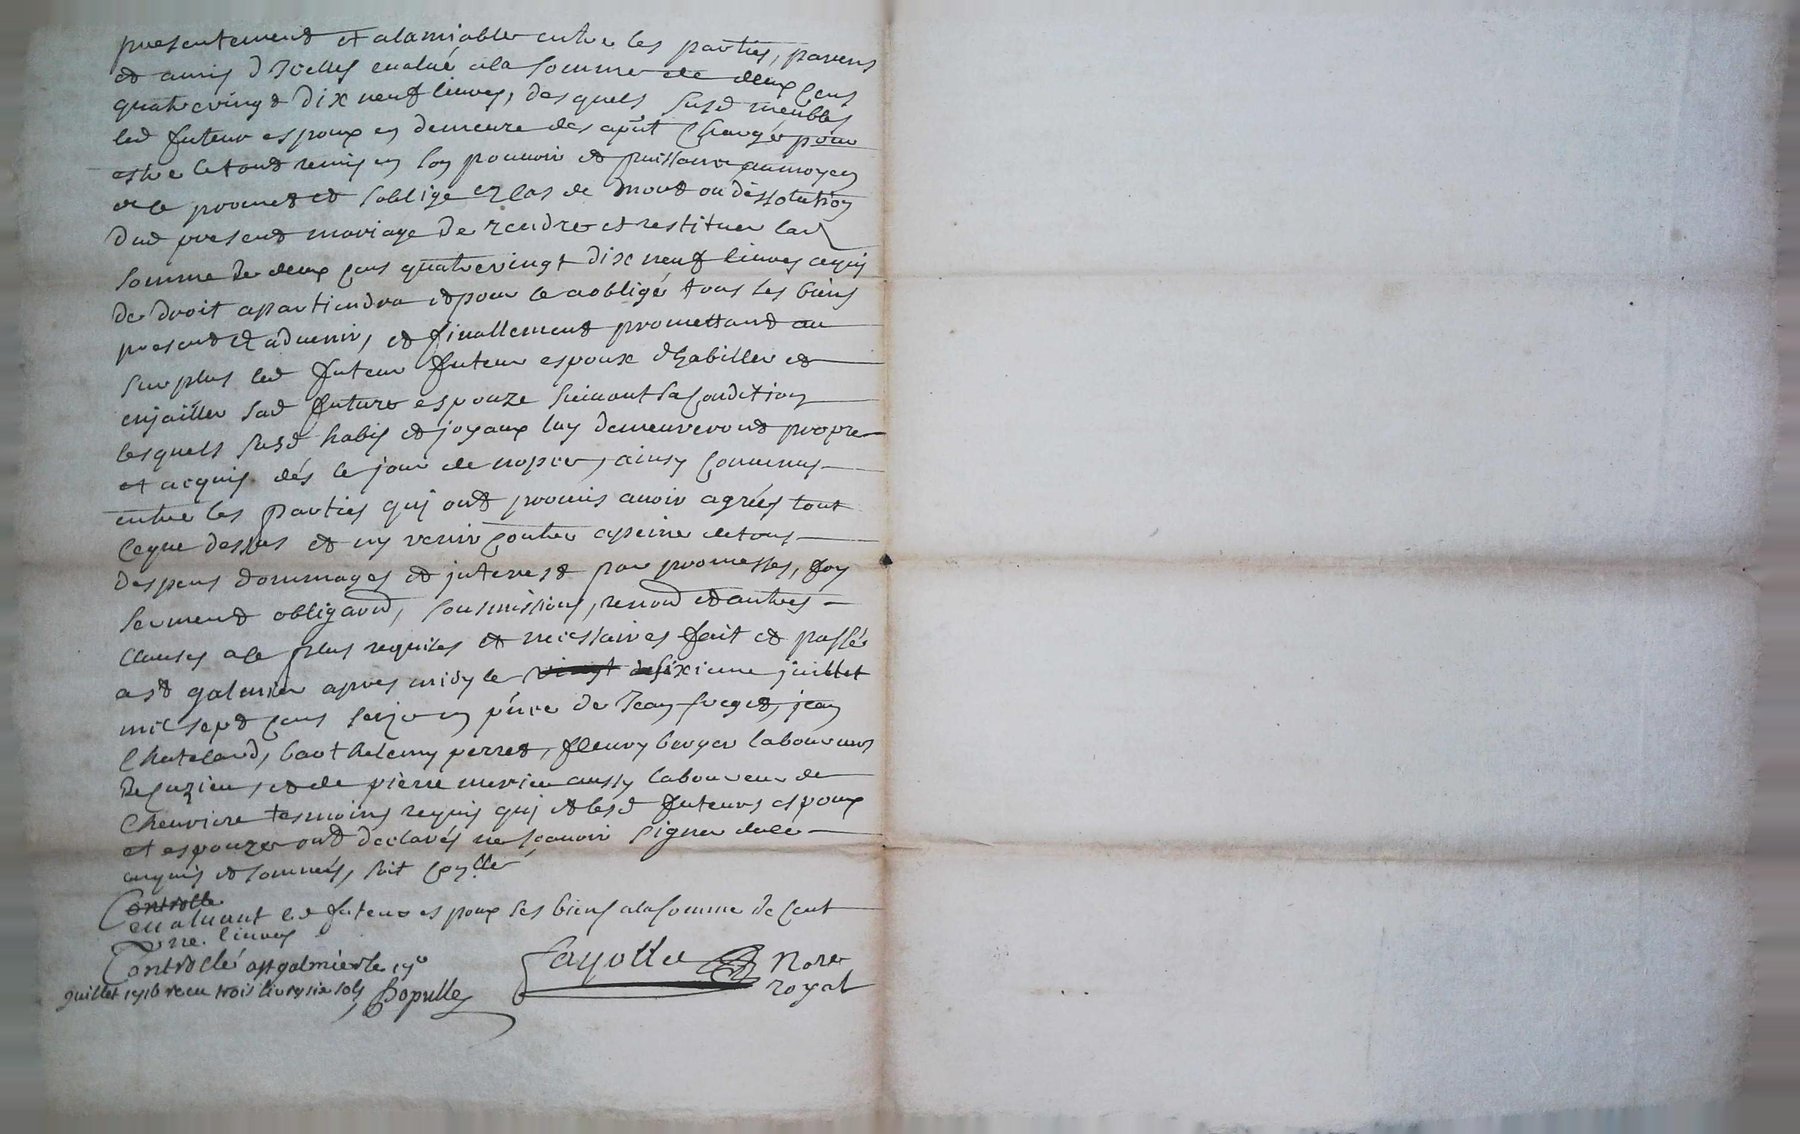 presentement et alamiable entre les parties, parens
et amis d'Icelles evalué ala somme de deux cens
quatrevingt dix neuf livres, desquels susd meubles
led futeur espoux en demeure des apnt chargé pour
estre le tout remis en son pouvoir et puissance aumoyen
de ce promet et soblige en cas de mort ou dissolution
dud present mariage de rendre et restituer lad
somme de deux cens quatrevingt dix neuf livres aquj
de droit apartiendra et pour ce aobligé tous ses biens
present et advenir, et finallement promettant au
surplus led futeur futeur espoux dhabiller et
enjailler sad future espouze suivant sa condition
lesquels susd habis et joyaux luy demeureront propre
et acquis dés le jour de nopces, ainsy convenus
entre les parties quj ont promis avoir agréés tout
ceque dessus et ny venir contre apeine detous
despens dommages et interest par promesses, foy
serment obligaon, sousmissions, renon et autres
clauses ace plus requises et necessaires fait et passé
a st galmier apres midy le sixieme juillet
mil sept cens seize en pnce de Jean juget, jean
Chateland, barthelemy perret, fleury berger laboureurs
de cuzieu, et de pierre merieu aussy laboureur de
Chevriere tesmoins requis quj et lesd futeurs espoux
et espouze ont declarés ne scavoir signer dece
enquis et sommés, soit conllé
Controlle
evaluant led futeur espoux ses biens alasomme de cent
livres
Controllé ast galmier le 17e
juillet 1716 receu trois livres six sols
Fayolle Nore
royal